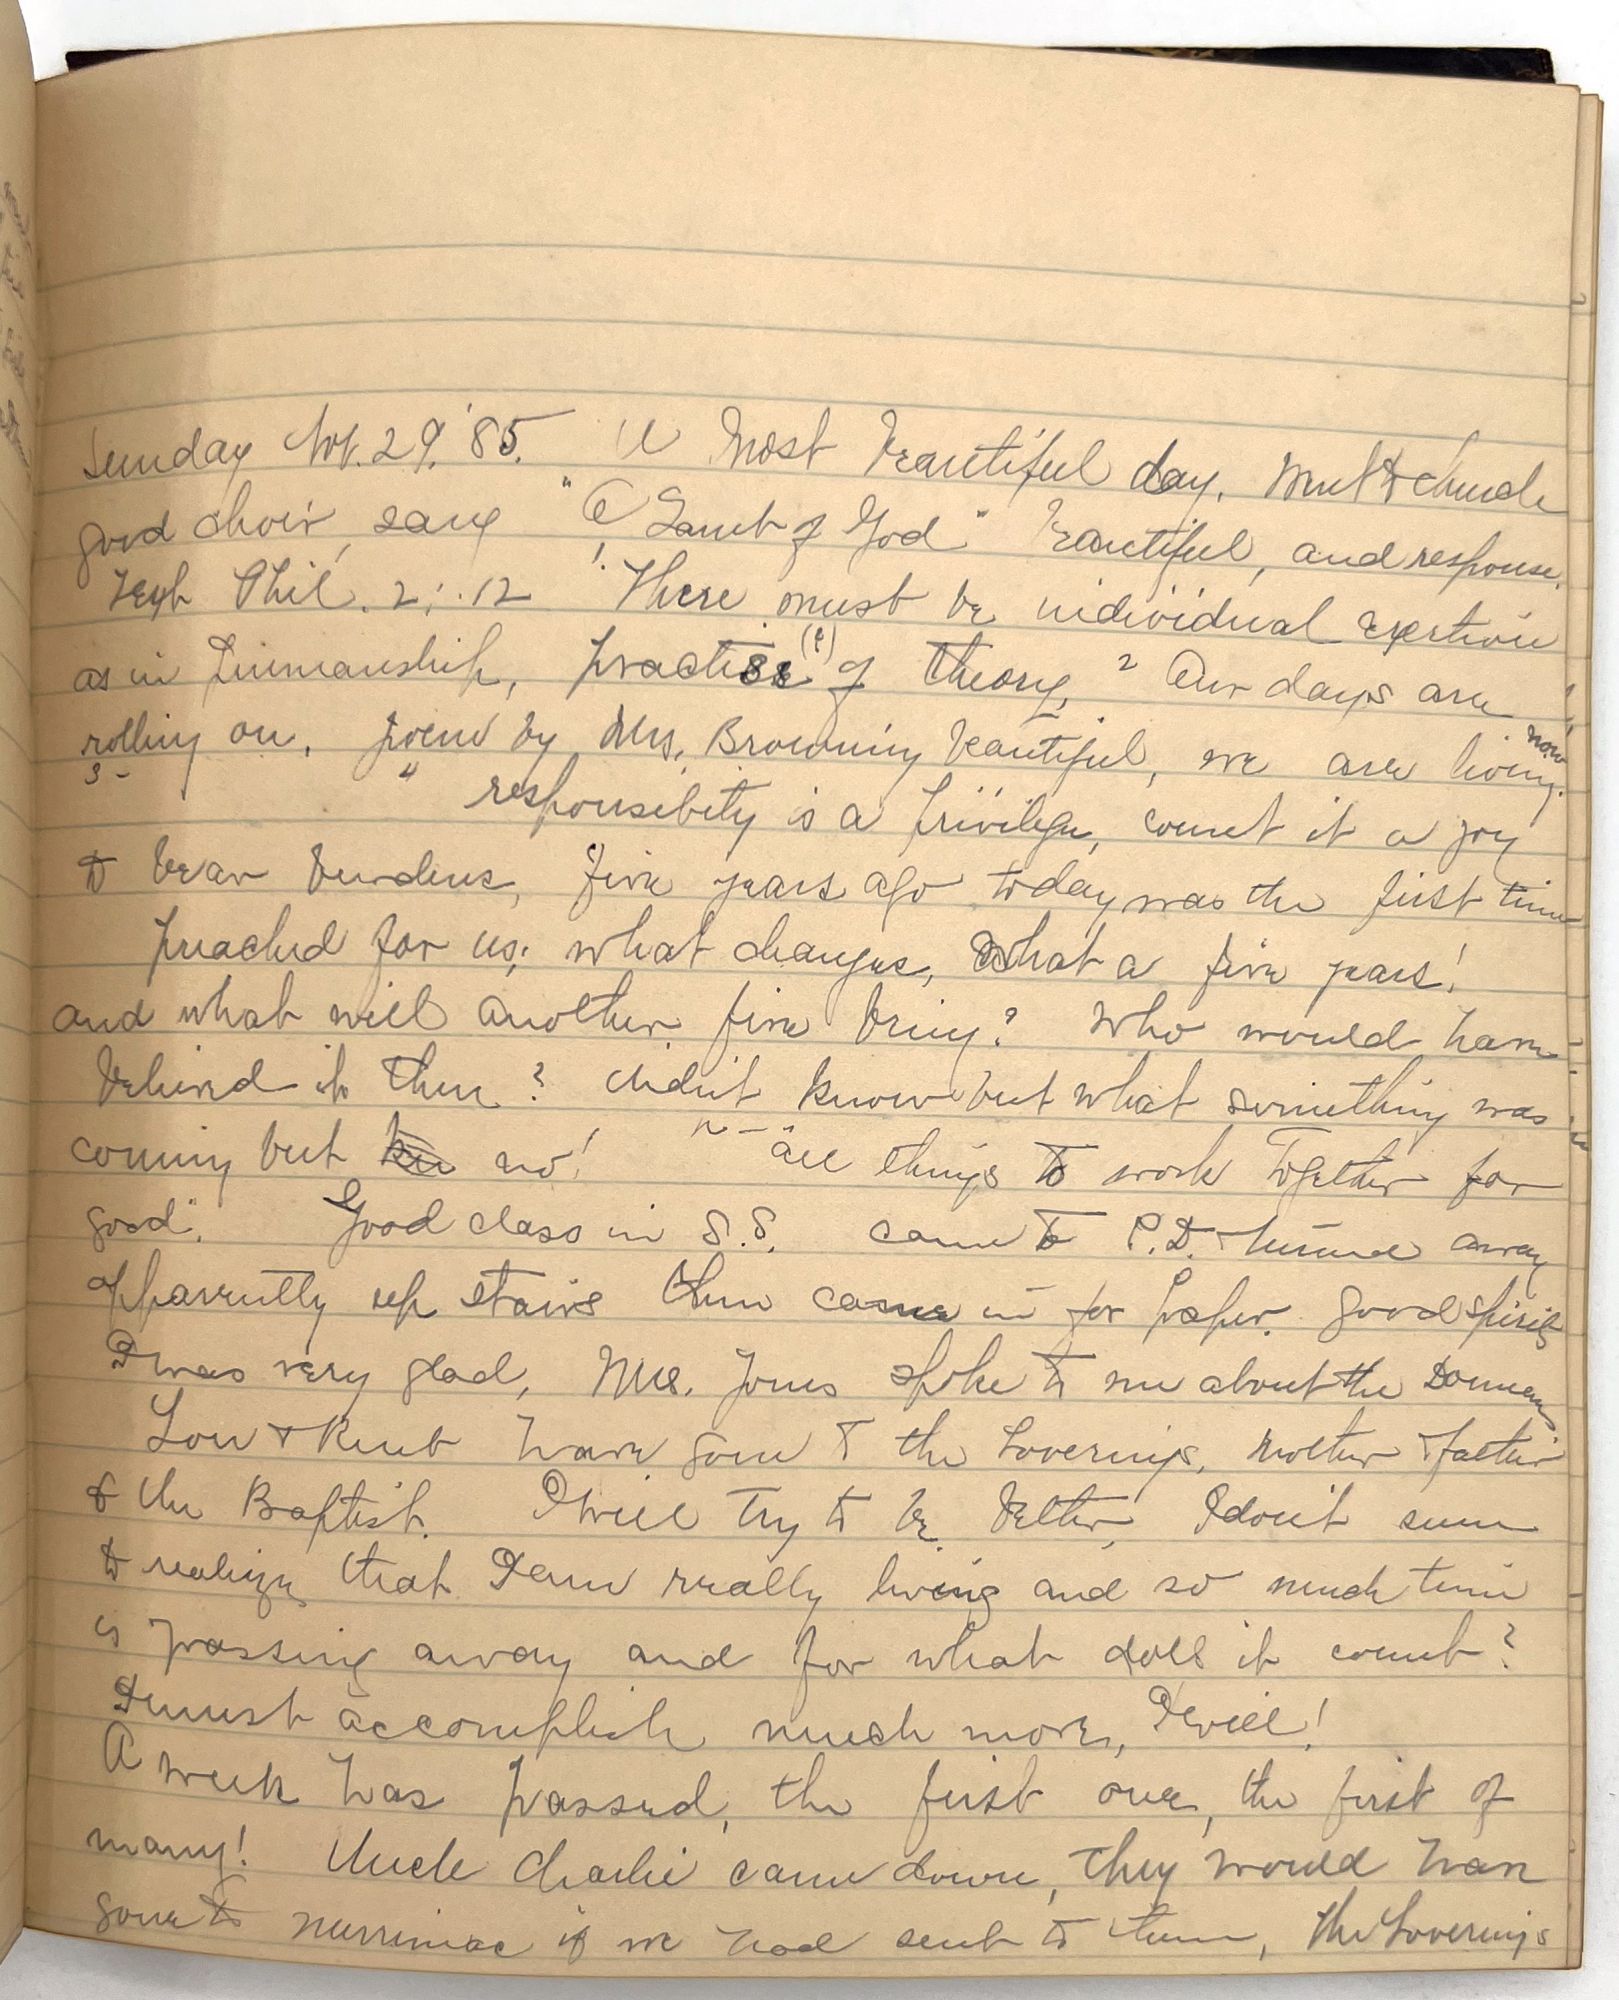 Sunday Nov. 29, '85. A most beautiful day. Went to church
good choir, sang "O Lamb of God" beautiful, and response.
Text Phil. 2:12 1. There must be individual exertion
as in penmanship, practise (?) of theory, 2 Our days are
rolling on, poem by Mrs. Browning beautiful, we are living now.
3 - 4 responsibity is a privilege, count it a joy
to bear burdens, five years ago today was the first time
preached for us; what changes, what a five years!
and what will another five bring? Who would have
behind it then? didn't know but what something was
coming but no! "all things to work together for
good". Good class in S.S. came to P.D. turned away
apparrently up stairs then came in for paper. good spirits
I was very glad, Mrs. Jones spoke to me about the
Lou & Kent have gone to the Loverings, mother & father
to the Baptist. I will try to be better, I don't seem
to realize that I am really living and so much time
is passing away and for what does it count?
I must accomplish much more, I will!
A week has passed, the first one, the first of
many! Uncle Charlie came down, they would have
gone to Merrimac if we had sent to them, the Loverings